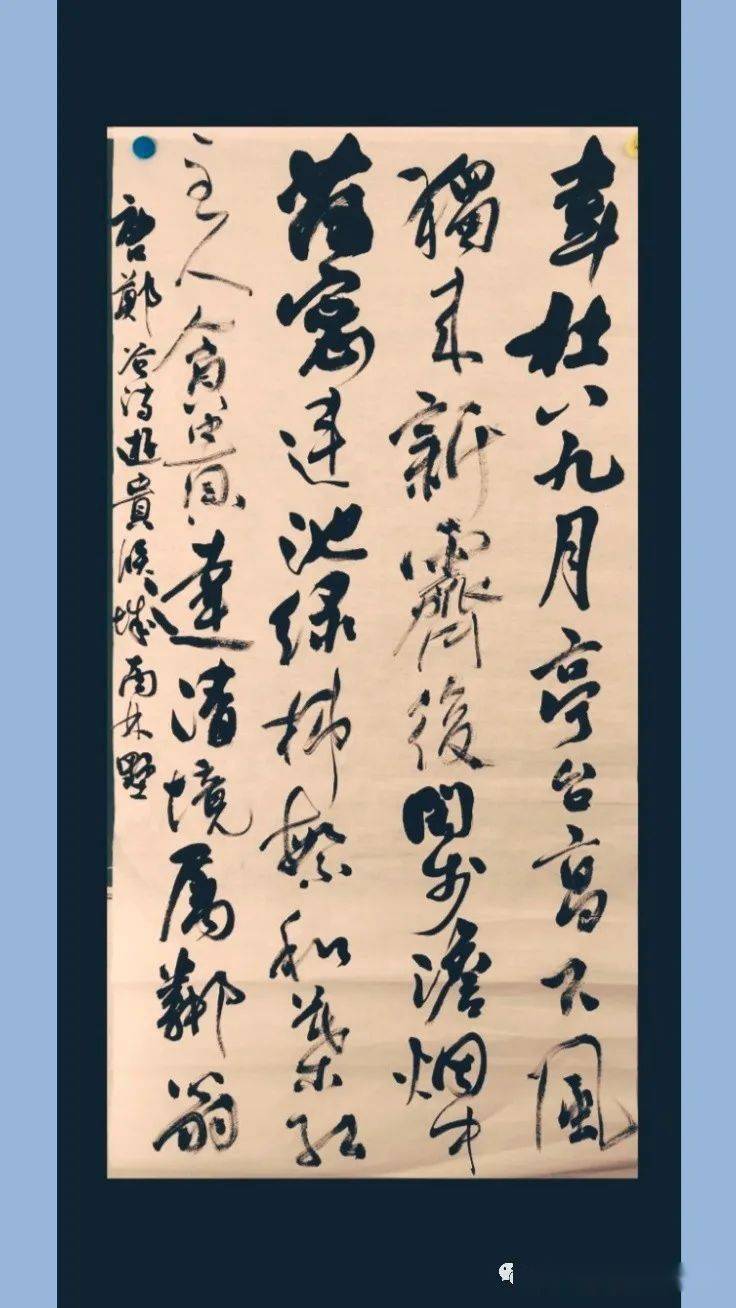 韋杜八九月亭台高下風
獨来新霽後閒步澹烟中
荷密連池绿柿繁和葉红
主人貪達清境属鄰翁
唐鄭谷诗遊貴侯城南林墅